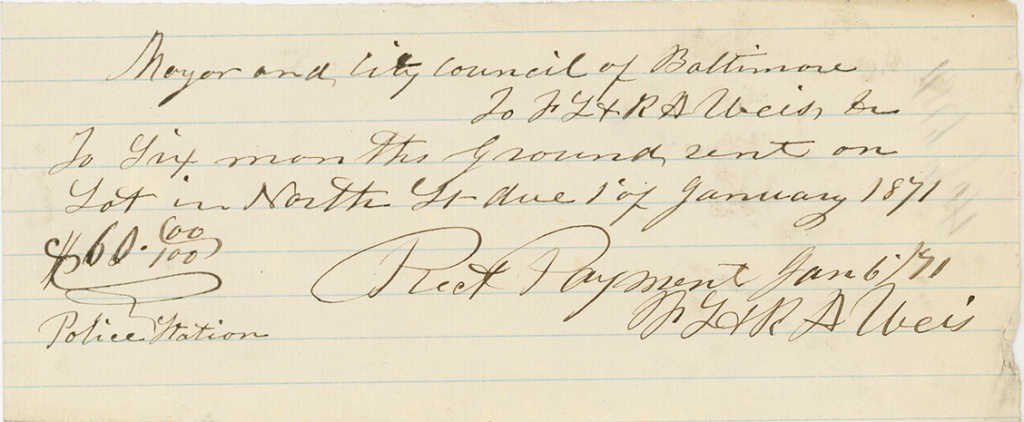 Mayor and City Council of Baltimore
To F L & R A Weis, Dr
To Six months Ground rent on
Lot in North St due 1st of January 1871
$60. 00/100
Rect Payment Jan 6th /71
F L & R A Weis
Police Station